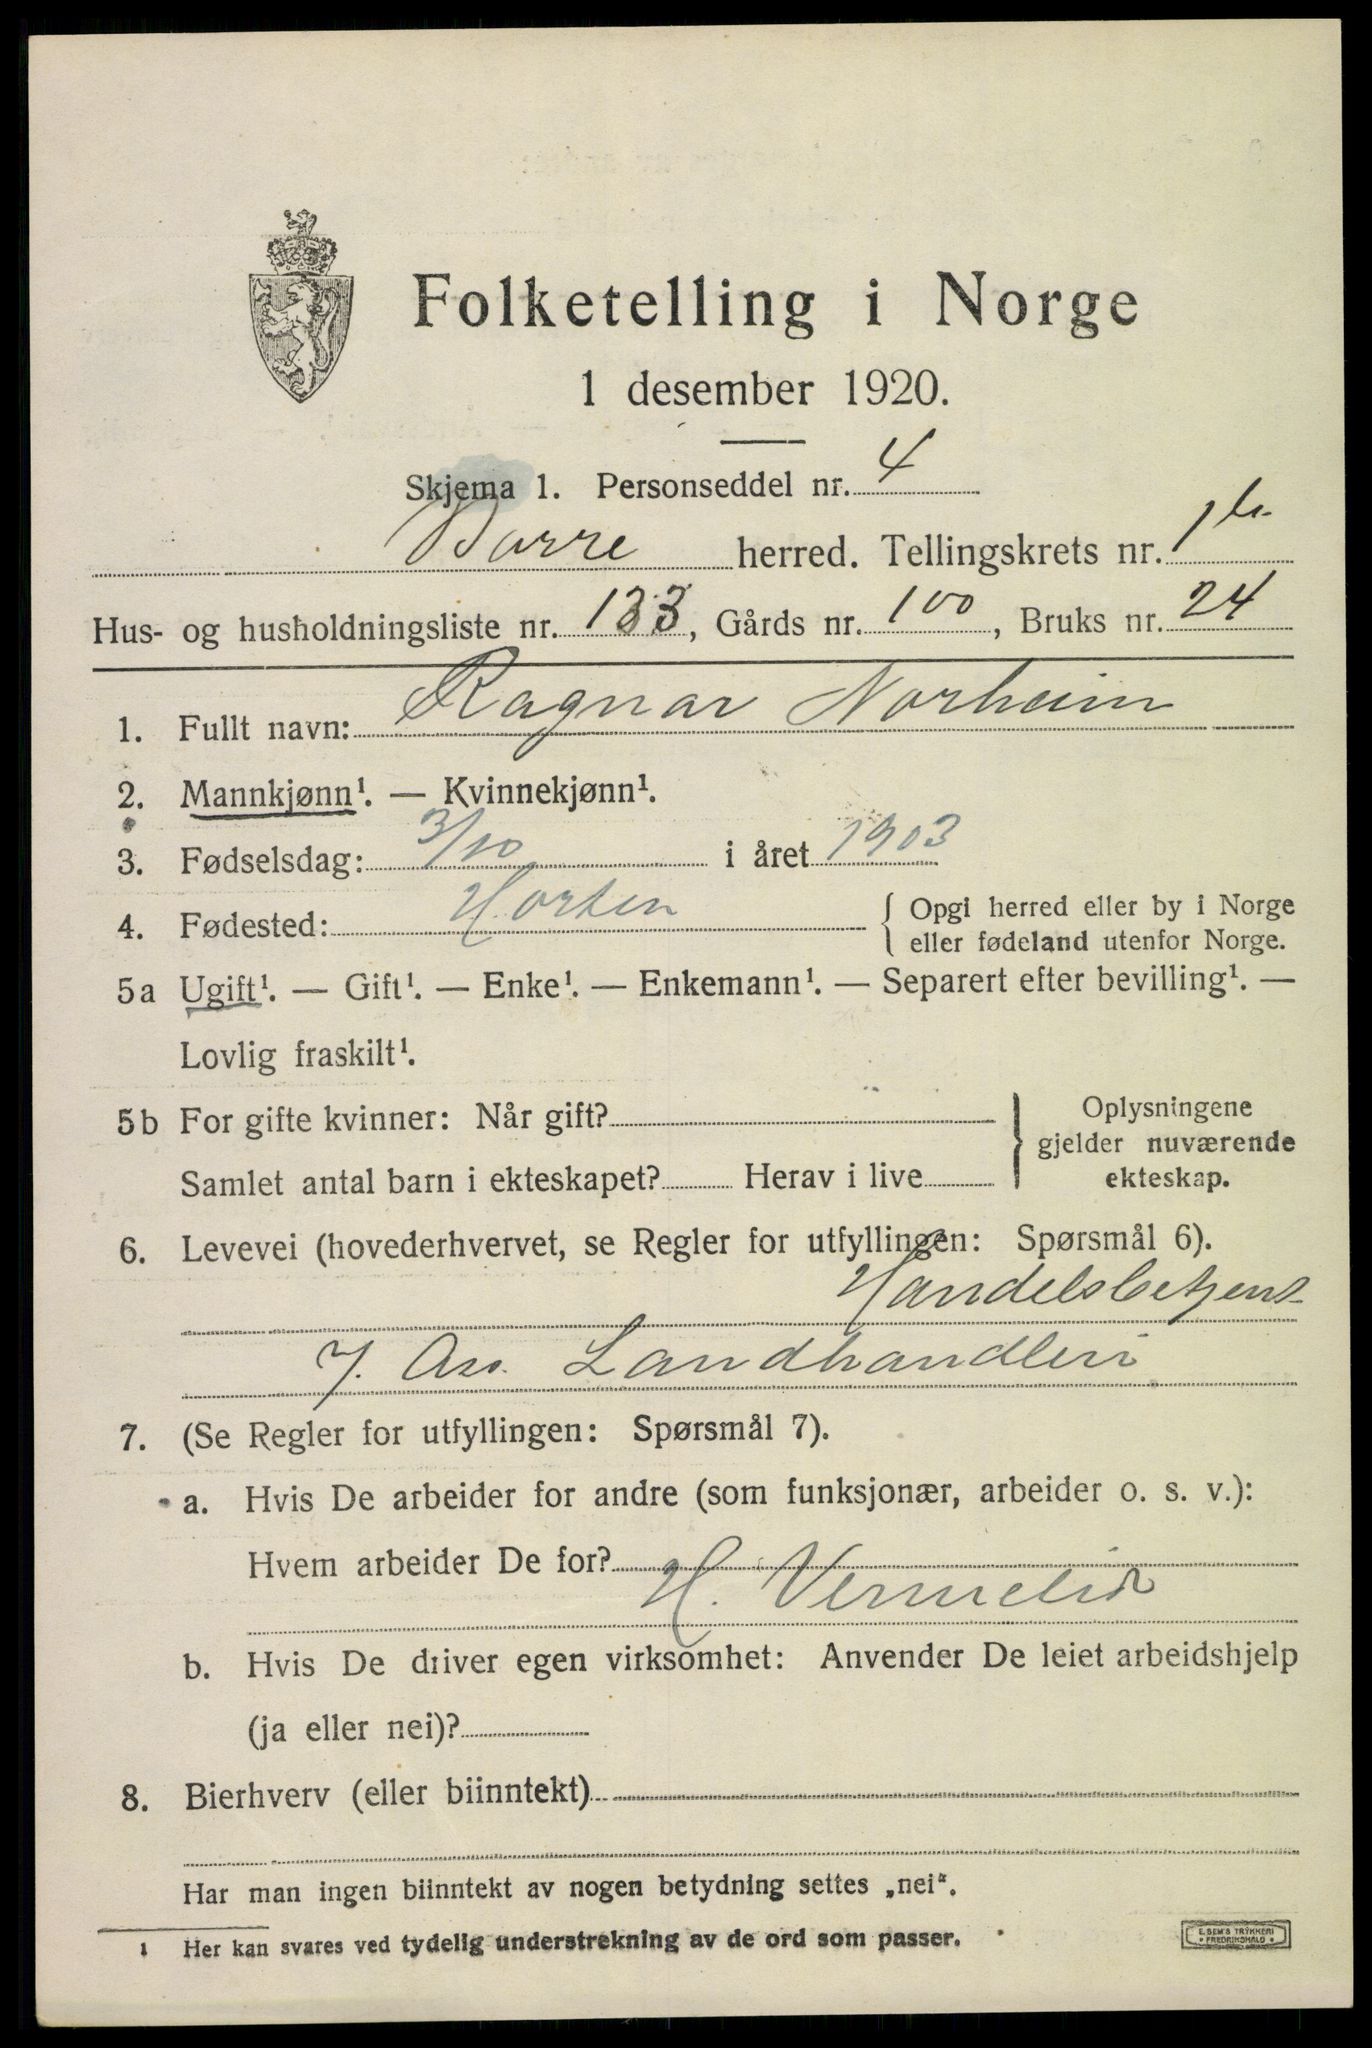 Folketelling i Norge
1 desember 1920.
Skjema 1. Personseddel nr. 4
Borre herred. Tellingskrets nr. 1
Hus- og husholdningsliste nr. 133, Gårds nr. 100, Bruks nr. 24
1. Fullt navn: Ragnar Norheim
2. Mannkjønn¹. — Kvinnekjønn¹.
3. Fødselsdag: 3/10 i året 1903
4. Fødested: Horten { Opgi herred eller by i Norge
eller fødeland utenfor Norge.
5a Ugift¹. — Gift¹. — Enke¹. — Enkemann¹. — Separert efter bevilling¹. —
Lovlig fraskilt¹.
5b For gifte kvinner: Når gift?
Samlet antal barn i ekteskapet? Herav i live
} Oplysningene
gjelder nuværende
ekteskap.
6. Levevei (hovederhvervet, se Regler for utfyllingen: Spørsmål 6).
Handelsbetjent
Landhandleri
7. (Se Regler for utfyllingen: Spørsmål 7).
a. Hvis De arbeider for andre (som funksjonær, arbeider o. s. v.):
Hvem arbeider De for?
H. Vermelid
b. Hvis De driver egen virksomhet: Anvender De leiet arbeidshjelp
(ja eller nei)?
8. Bierhverv (eller biinntekt)
Har man ingen biinntekt av nogen betydning settes „nei“.
1 Her kan svares ved tydelig understrekning av de ord som passer.
E. SEM'S TRYKKERI
FREDRIKSHALD